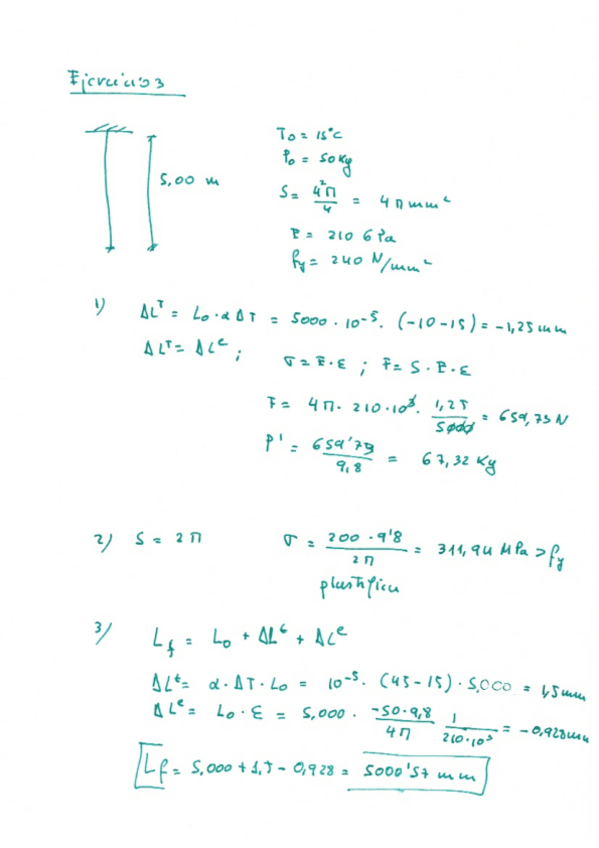 Ejercicio 3
5,00 m
T₀ = 15°C
P₀ = 50 Kg
S = 4²π/4 = 4π mm²
E = 210 GPa
fy = 240 N/mm²
1) ΔLᵀ = L₀·αΔT = 5000·10⁻⁵·(-10-15) = -1,25 mm
ΔLᵀ = ΔLᵉ; σ = E·ε; F = S·E·ε
F = 4π·210·10³·1,25/5000 = 659,73 N
P' = 659'73/9,8 = 67,32 Kg
2) S = 2π σ = 200·9'8/2π = 311,94 MPa > fy
plastifica
3) L_f = L₀ + ΔLᵗ + ΔLᵉ
ΔLᵗ = α·ΔT·L₀ = 10⁻⁵·(45-15)·5,000 = 1,5 mm
ΔLᵉ = L₀·ε = 5,000·-50·9,8/4π 1/210·10³ = -0,928 mm
L_f = 5,000 + 1,5 - 0,928 = 5000'57 mm